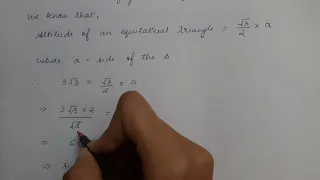 We know that,
Altitude of an equilateral triangle = √3/2 × a
Where, a = side of the Δ
∴ 3√3 = √3/2 × a
⇒ 3√3 × 2/√3 =
⇒ 6
⇒